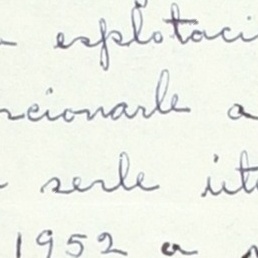 esplotaci
ncionarle a
serle út
1952 a